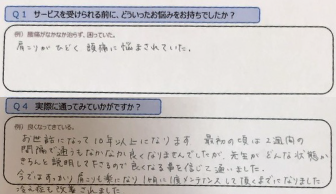 Q1 サービスを受けられる前に、どういったお悩みをお持ちでしたか？
例）腰痛がなかなか治らず、困っていた。
肩こりがひどく 頭痛に悩まされていた。
Q4 実際に通ってみていかがですか？
例）良くなってきている。
お世話になって10年以上になります 最初の頃は2週間の
間隔で通うもなかなか良くなりませんでしたが、先生が どんな状態か
きちんと説明して下さるので良くなる事を信じて通いました。
今ではすっかり 肩こりも楽になり 1ヶ月に1度メンテナンス して頂くまでになりました
冷え症も改善されました